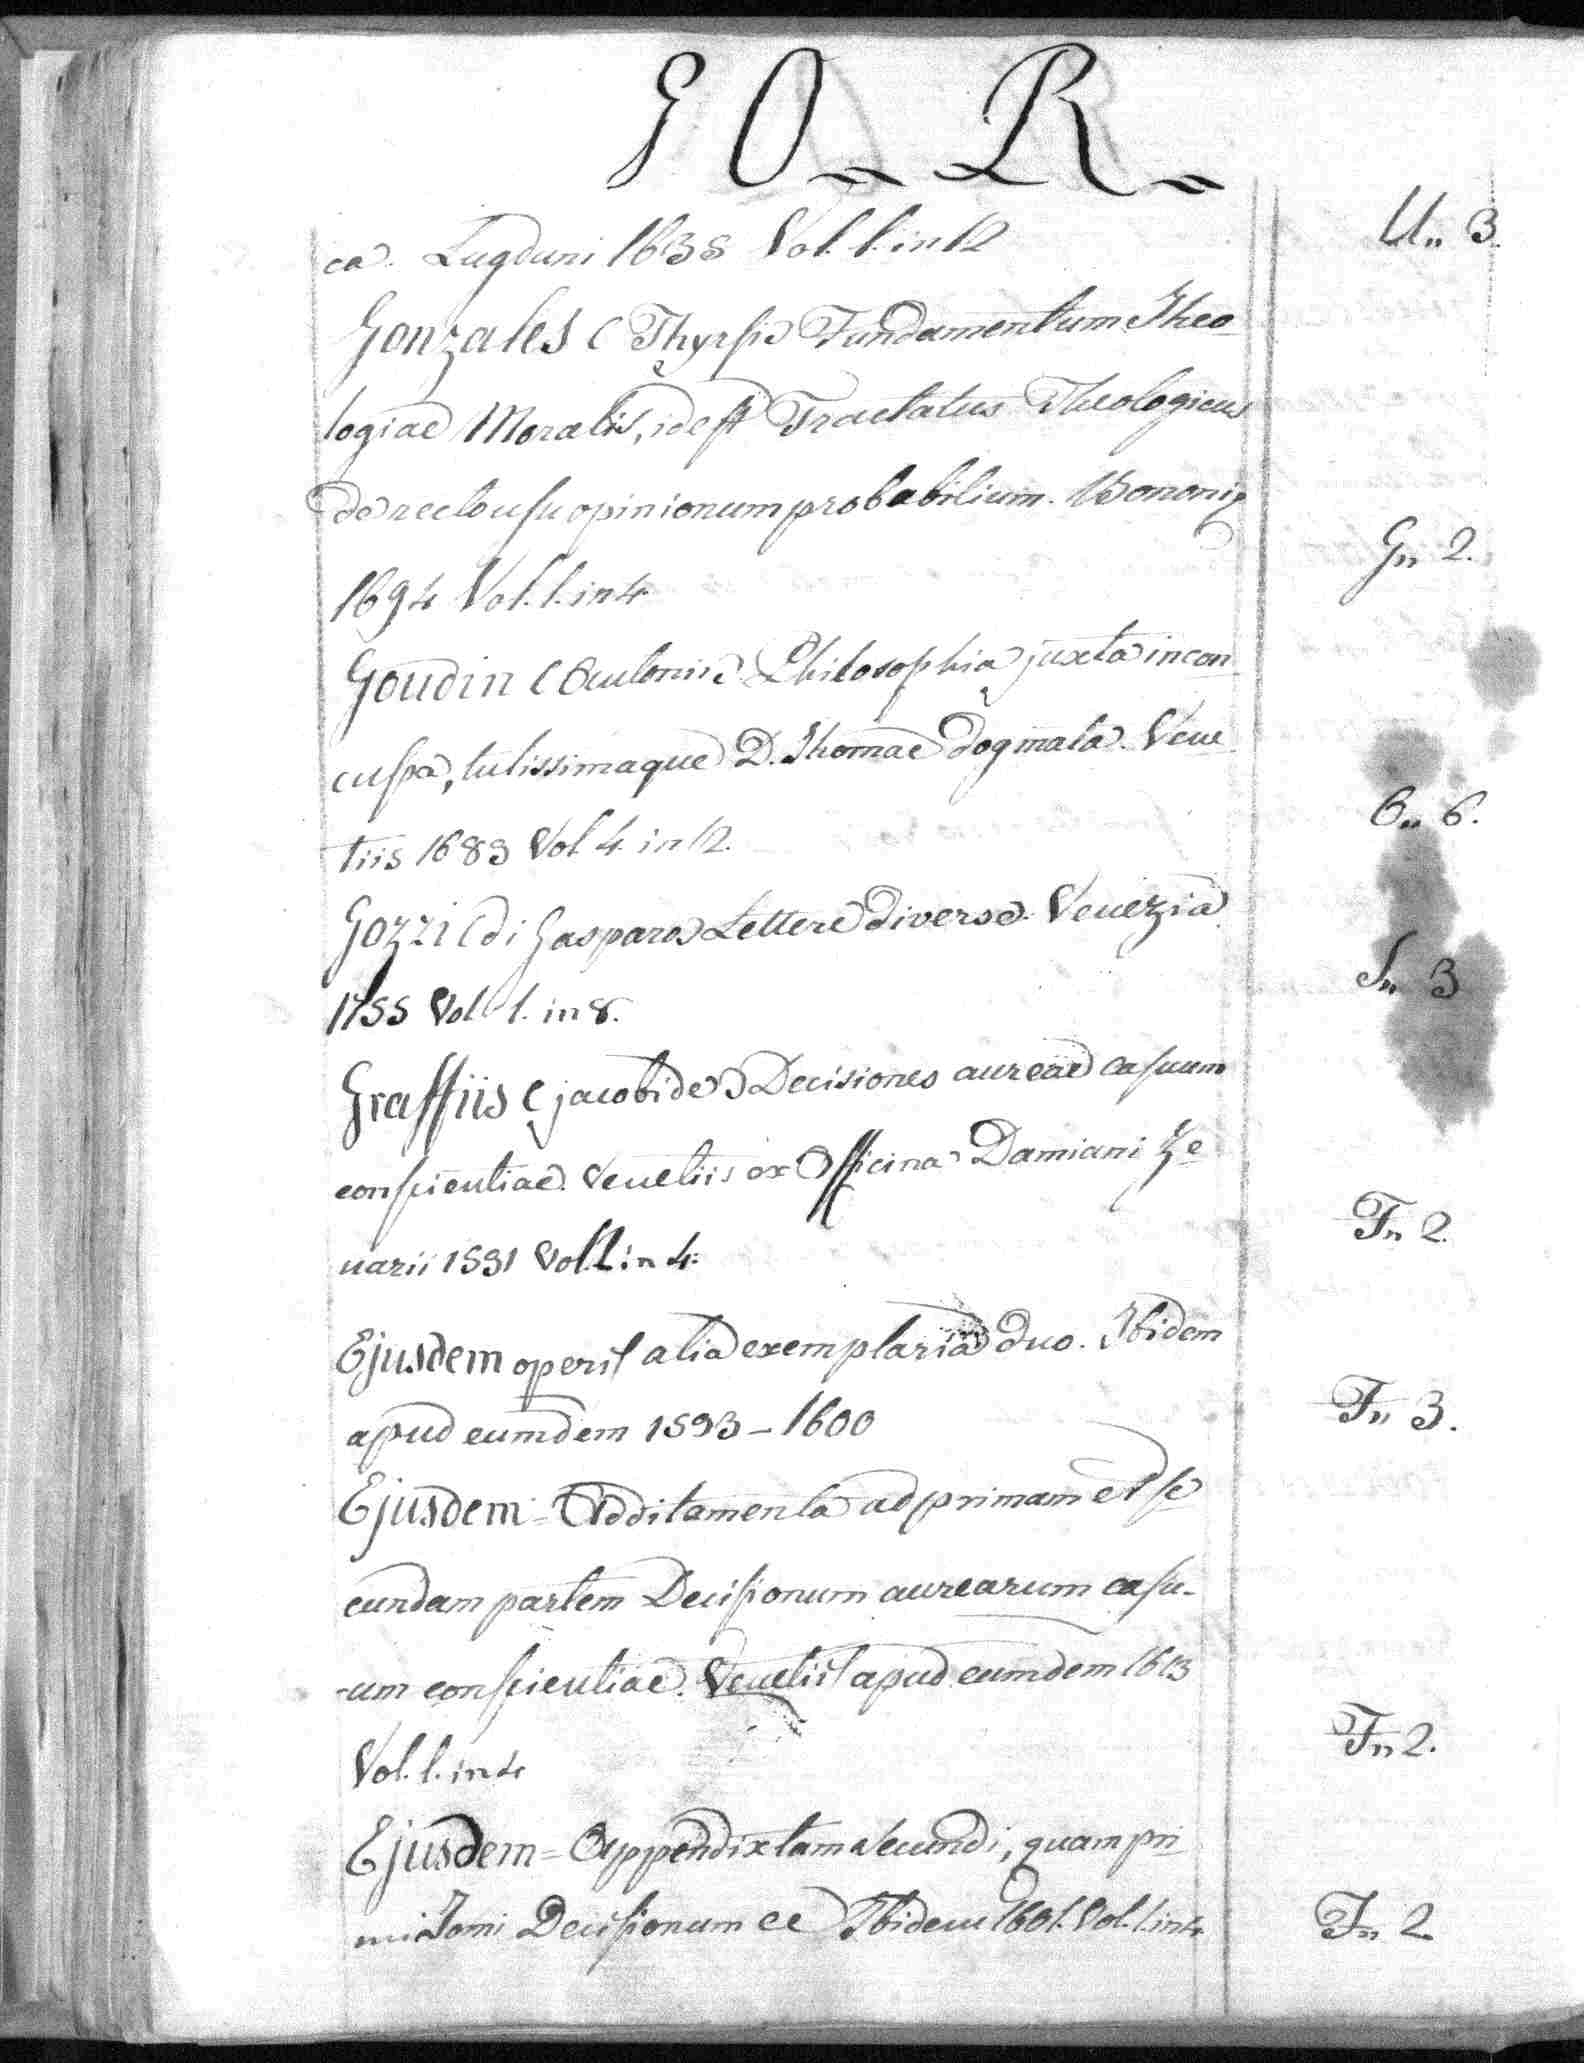 G O.. R..
ca. Lugduni 1638 Vol. 1. in 12 U.. 3.
Gonzales (Thyrsi) Fundamentum Theo-
logiae Moralis, idest Tractatus Theologicus
de recto usu opinionum probabilium. Bononię
1694 Vol. 1. in 4 G.. 2.
Goudin (Antonii) Philosophia juxta incon-
cussa, tutissimaque D. Thomae dogmata. Vene-
tiis 1683 Vol. 4. in 12. O.. 6.
Gozzi (di Gasparo) Lettere diverse. Venezia
1755 Vol. 1. in 8. S.. 3
Graffiis (jacobi de) Decisiones aureae casuum
conscientiae. Venetiis ex Officina Damiani Ze-
narii 1591 Vol. 1. in 4. F.. 2.
Ejusdem operis alia exemplaria duo. Ibidem
apud eumdem 1593 - 1600 F.. 3.
Ejusdem = Additamenta ad primam et se-
cundam partem Decisionum aurearum casu-
-um conscientiae. Venetiis apud eumdem 1603
Vol. 1. in 4 F.. 2.
Ejusdem = Appendix tam secundi, quam pri-
mi Tomi Decisionum ec Ibidem 1601. Vol. 1. in 4 F.. 2